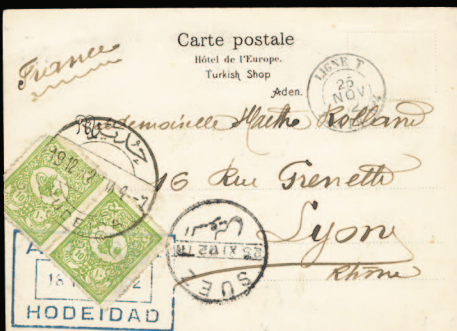 Carte postale
Hôtel de l'Europe.
Turkish Shop
Aden.
France
LIGNE T
25
NOV
Mademoiselle Marthe Rolland
16 Rue Grenette
Lyon
Rhône
HODEIDA
10 10
10 10
SUEZ
السويس
HODEIDAD